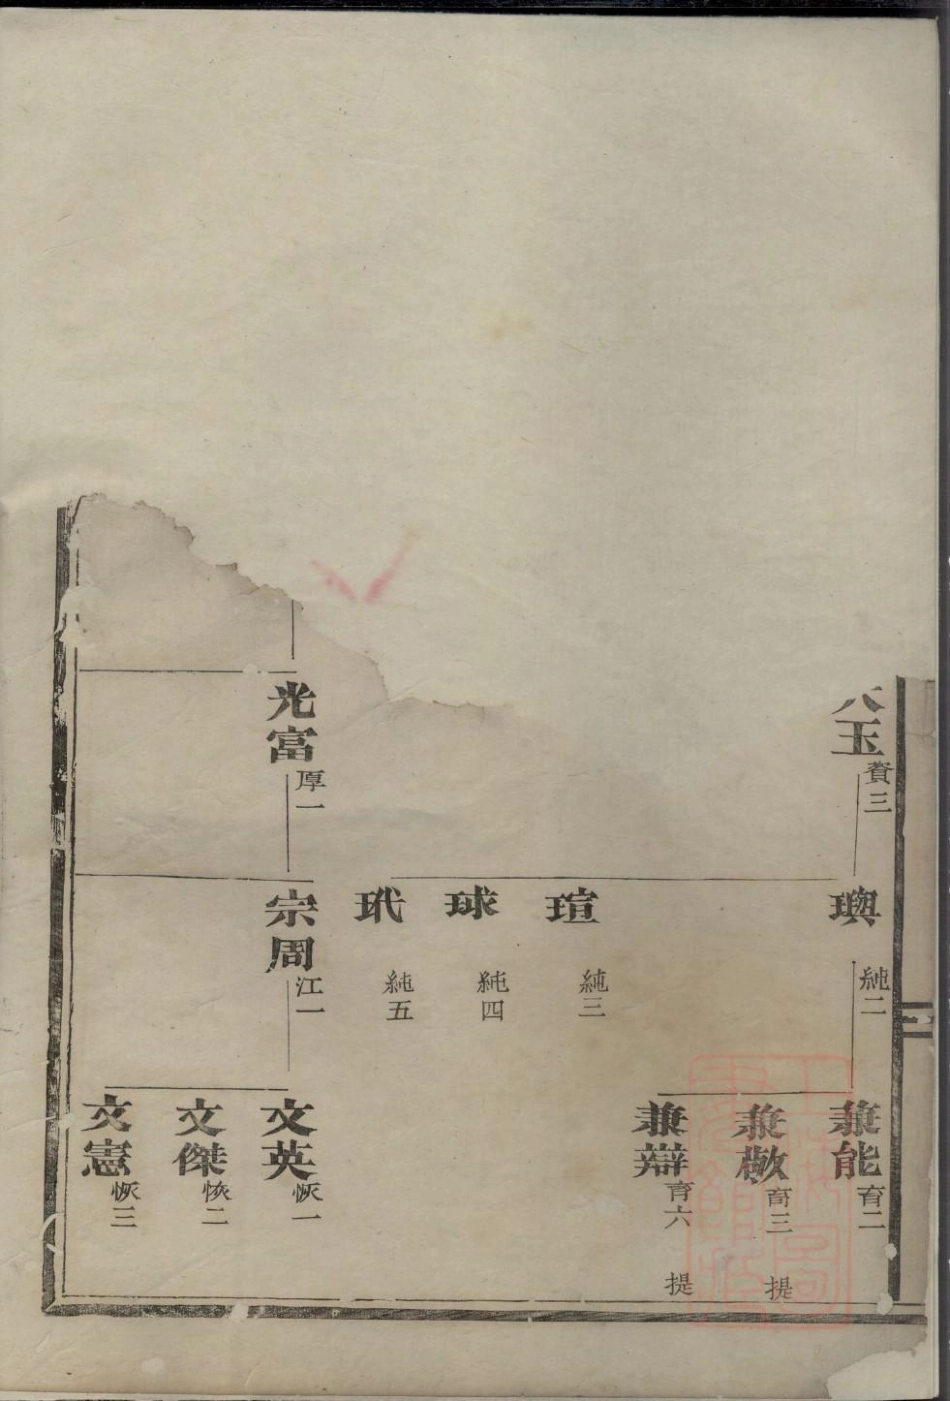 玉 賚三
璵 純二
瑄 純三
球 純四
玳 純五
兼能 育二
兼敏 育三 提
兼辯 育六 提
光富 厚一
宗周 江一
文英 恢一
文傑 恢二
文憲 恢三